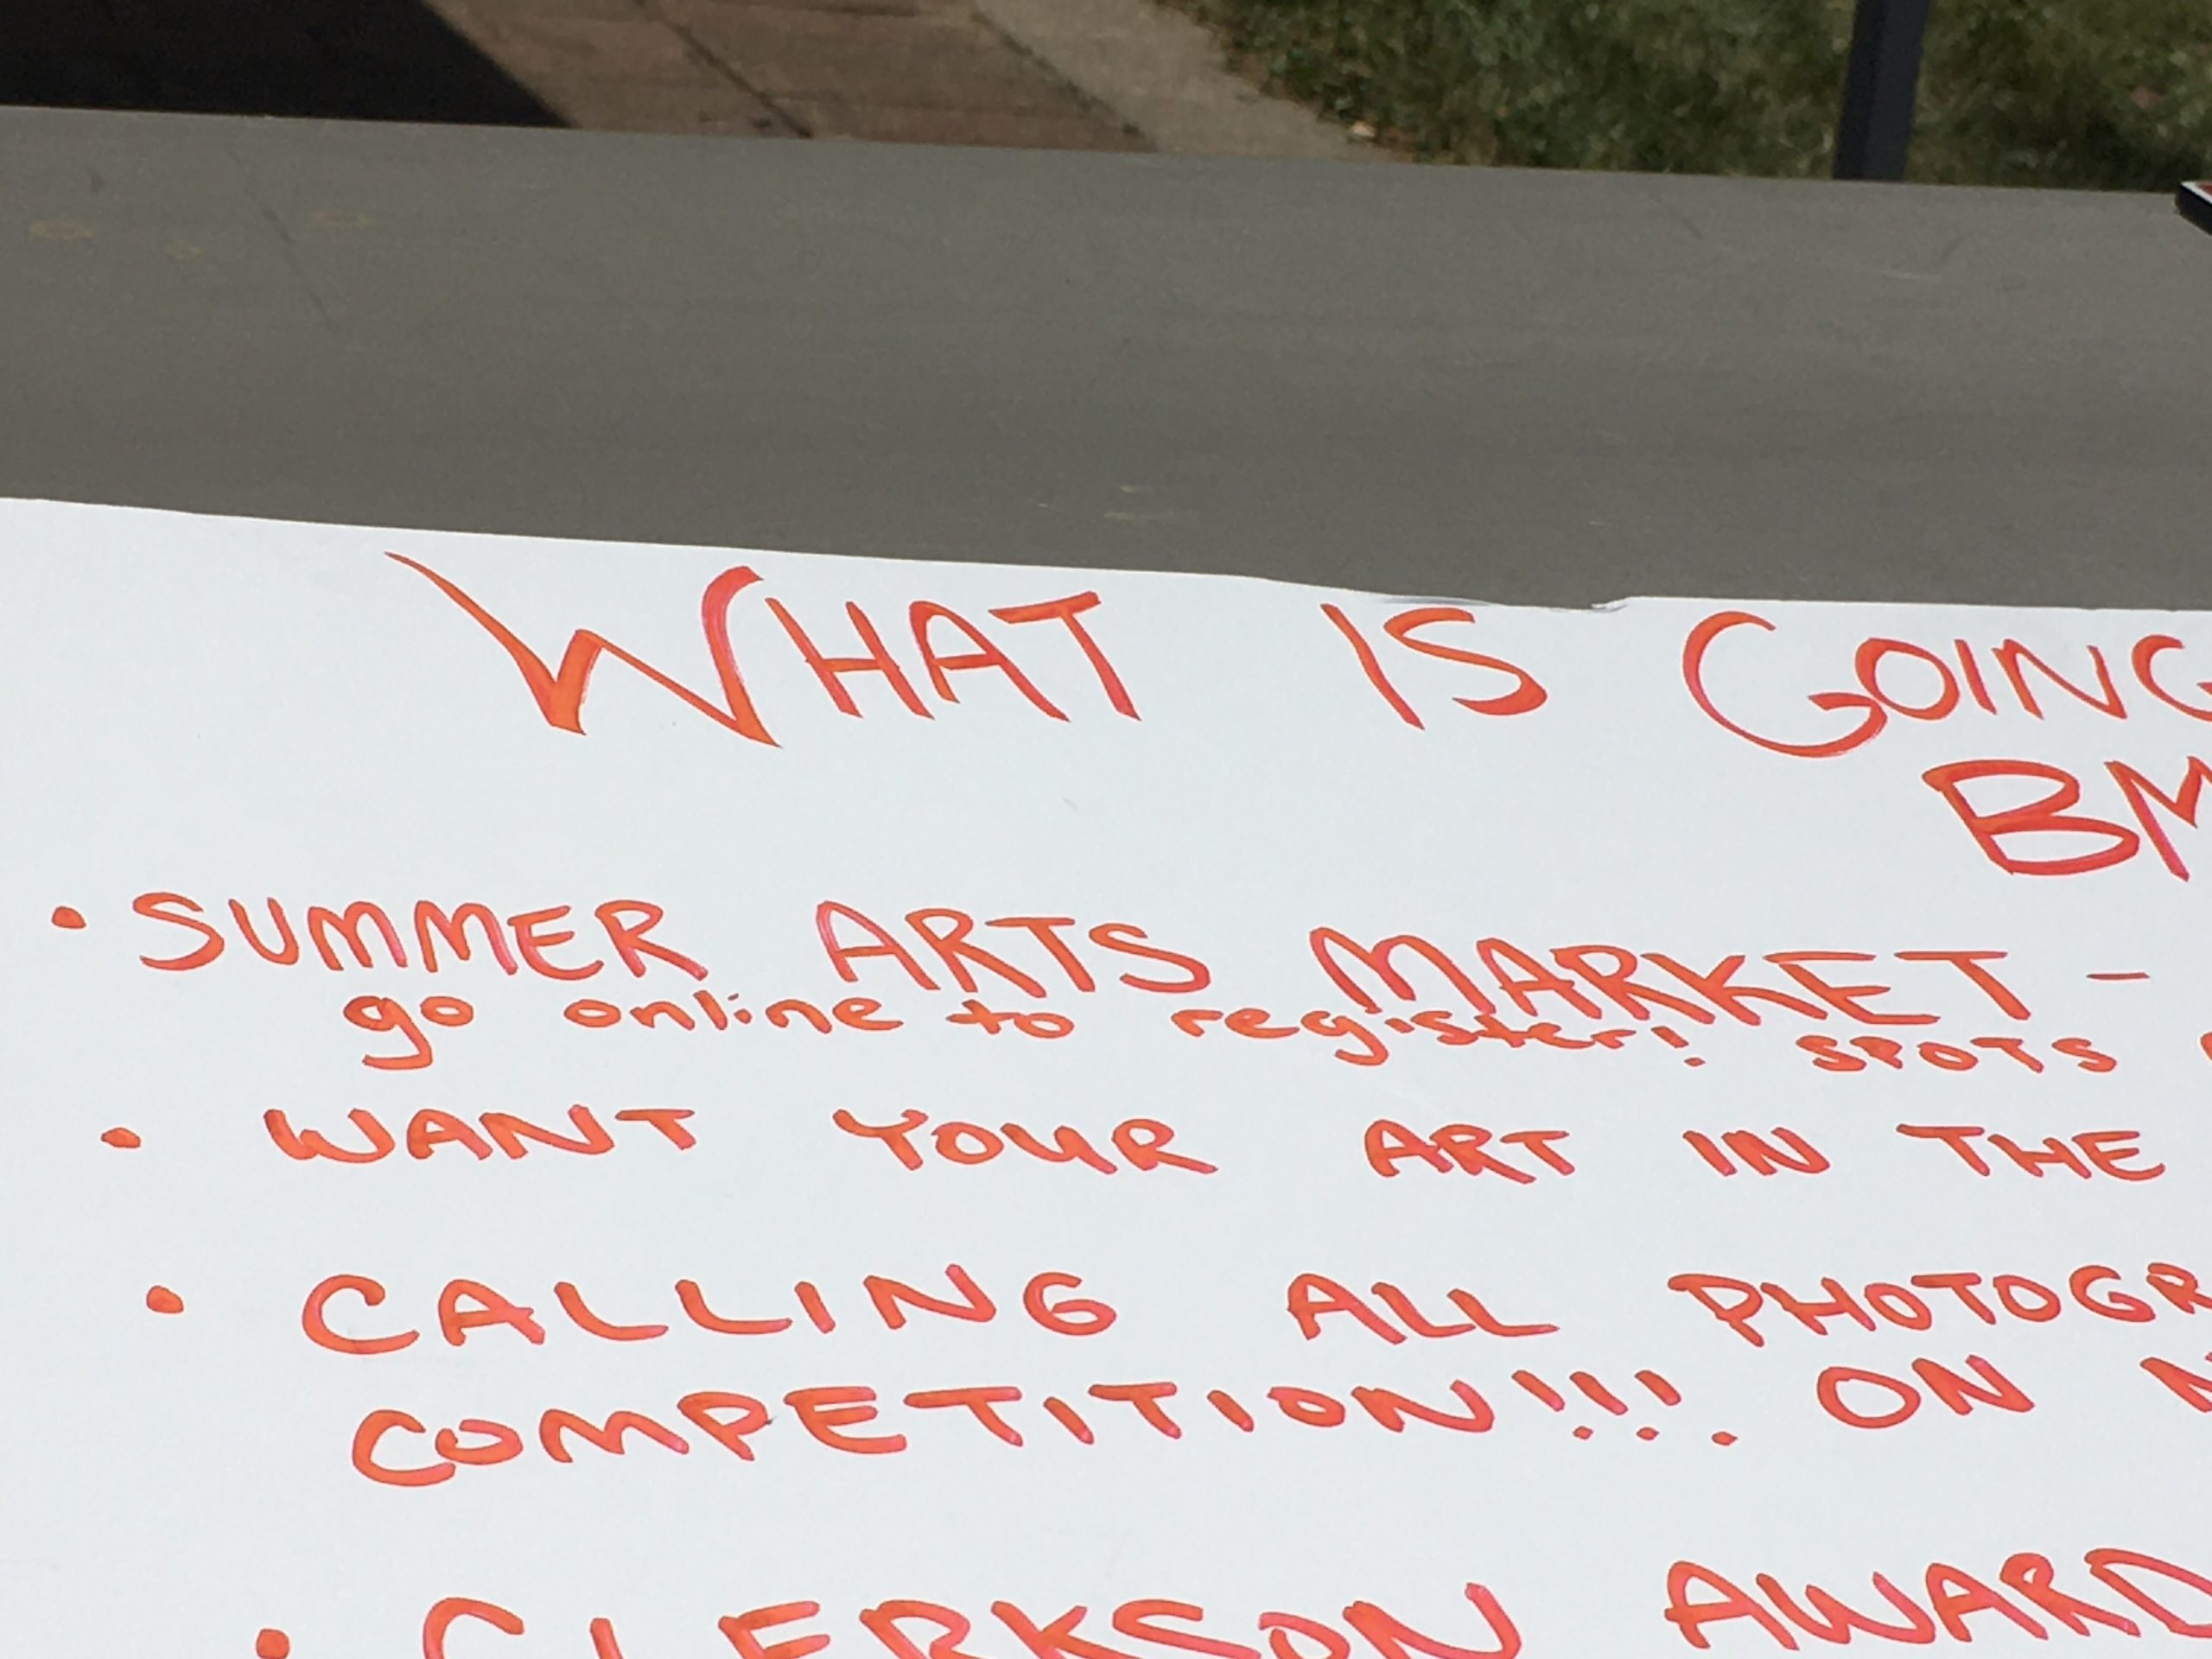 WHAT IS GOING
BM
• SUMMER ARTS MARKET -
go online to register! SPOTS
• WANT YOUR ART IN THE
• CALLING ALL PHOTOGR
COMPETITION!!! ON
• CLERKSON AWARD